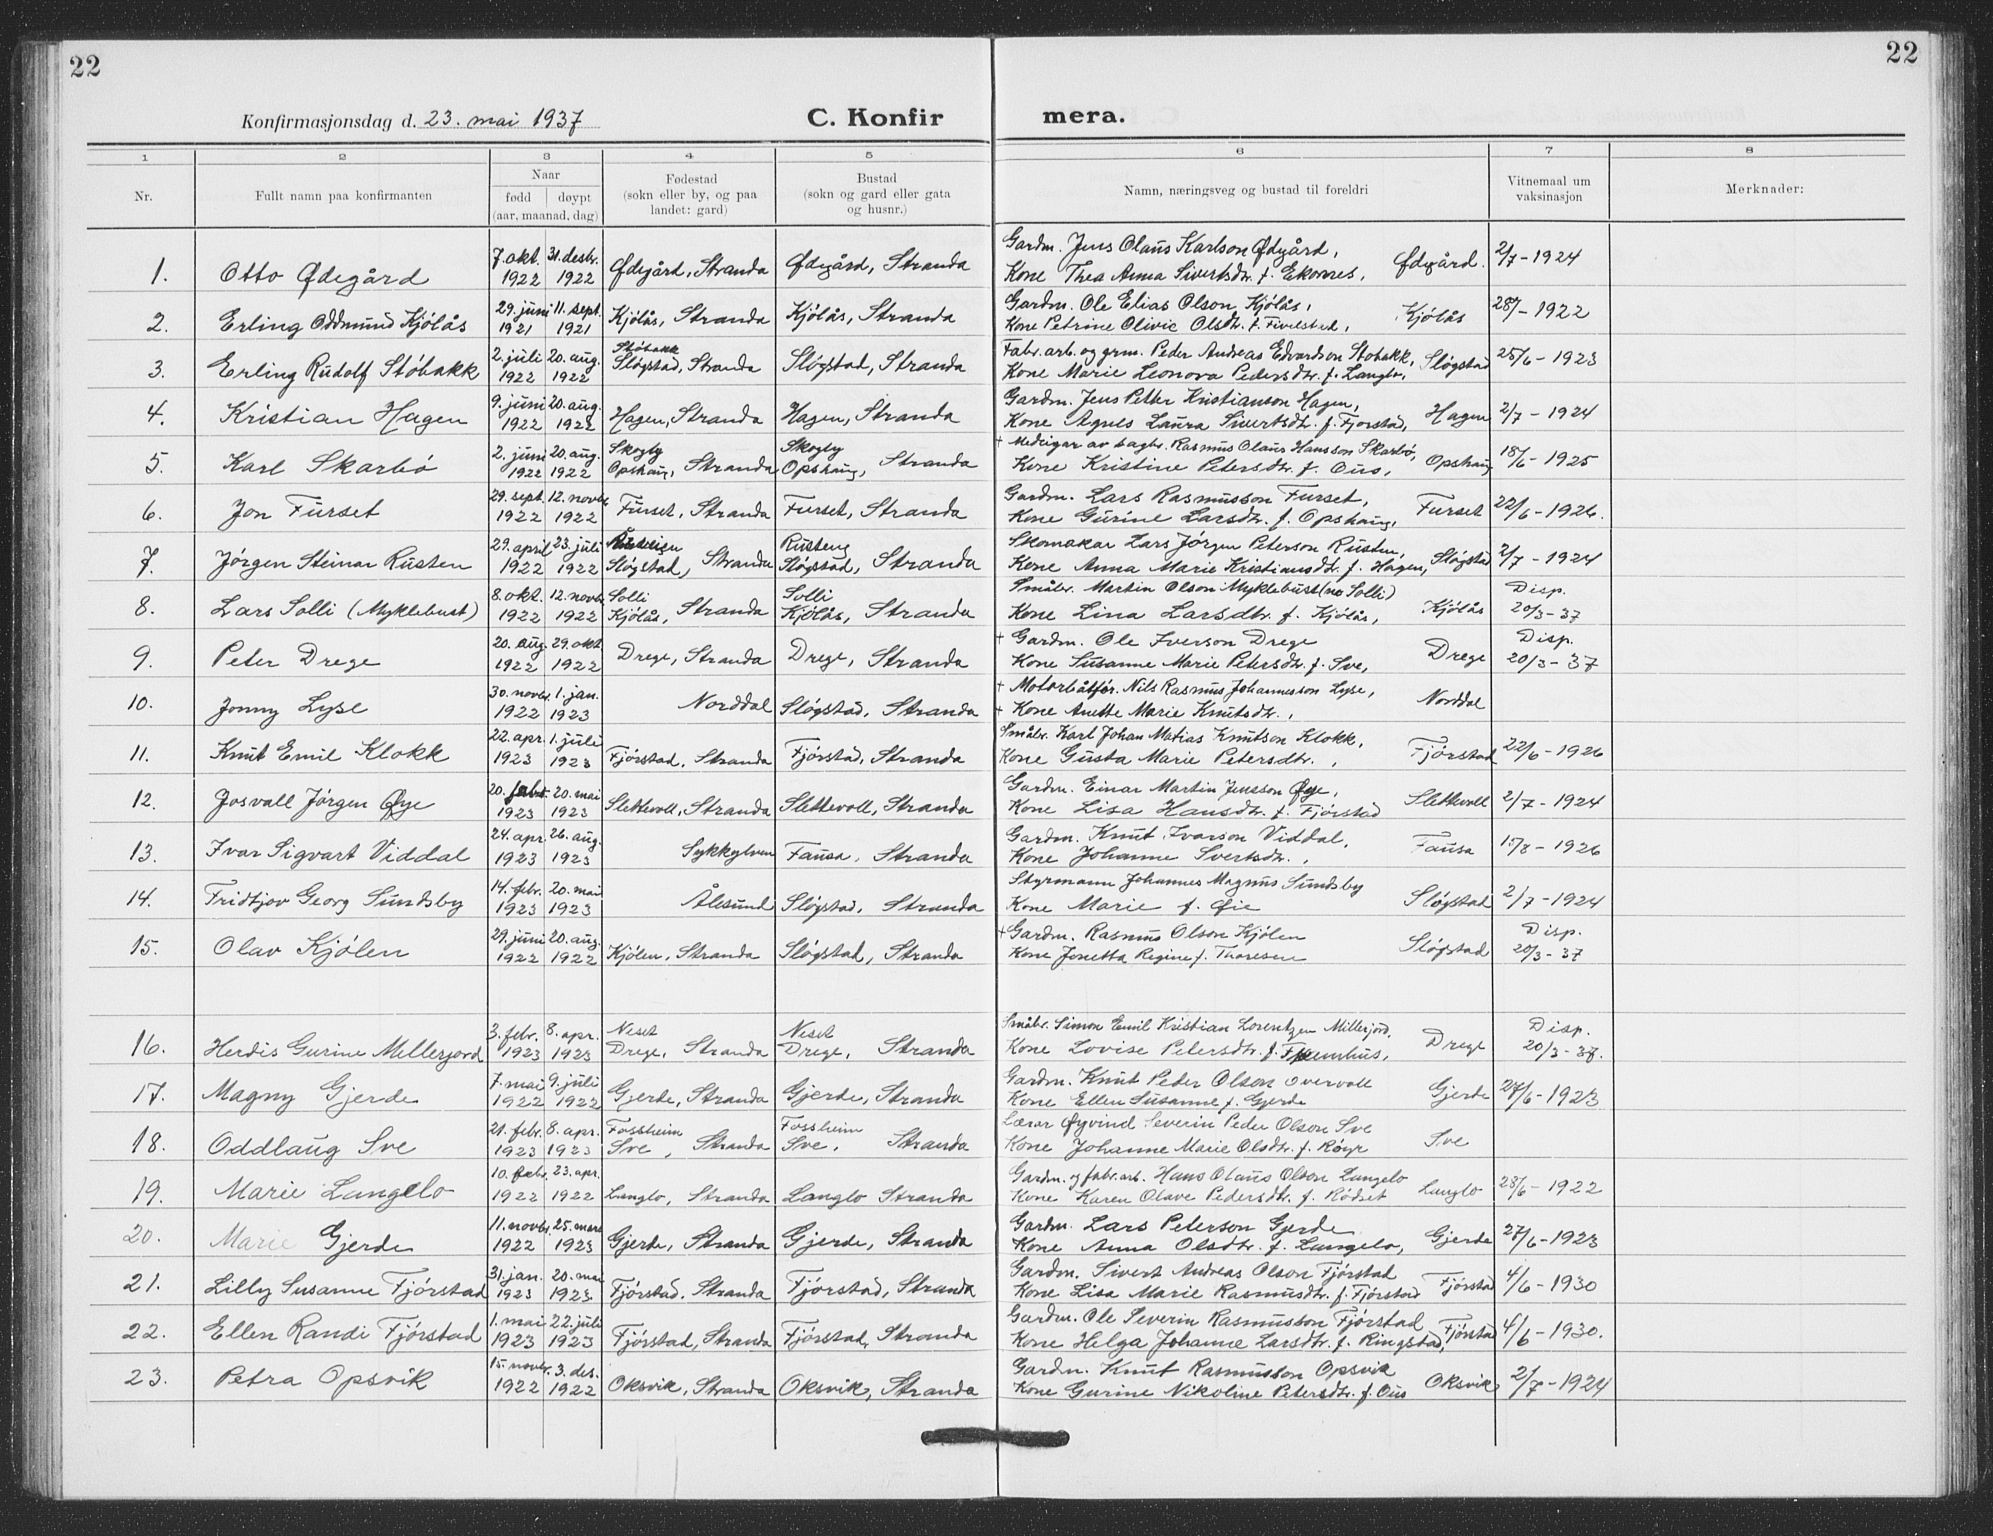 22
22
Konfirmasjonsdag d. 23. mai 1937
C. Konfirmera.
1 2 3 4 5 6 7 8
Nr. Fullt namn paa konfirmanten Naar født døypt (aar, maanad, dag) Fødestad (sokn eller by, og paa landet: gard) Bustad (sokn og gard eller gata og husnr.) Namn, næringsveg og bustad til foreldri Vitnemaal um vaksinasjon Merknader:
1. Otto Ødegård 7. okt. 1922 31. destr. 1922 Ødegård, Stranda Ødegård, Stranda Gardm. Jens Olaus Karlson Ødegård, Kone Thea Anna Sivertsdtr. f. Ekornes, Ødegård. 2/7 - 1924
2. Erling Oddmund Kjölås 29. juni 1921 11. sept. 1921 Kjölås, Stranda Kjölås, Stranda Gardm. Ole Elias Olson Kjölås, Kone Petrine Olivie Olsdtr. f. Fivelstad, Kjölås - 1922
3. Erling Rudolf Stöbakk 2. juli 1922 20. aug. 1922 Stöbakk Slögstad, Stranda Slögstad, Stranda Fabr.arb. og grm. Peder Andreas Edvardson Stobakk, Kone Marie Leonora Pedersdtr. f. Langlo, Slögstad 25/6 - 1923
4. Kristian Hagen 9. juni 1922 20. aug. 1922 Hagen, Stranda Hagen, Stranda Gardm. Jens Petter Kristianson Hagen, Kone Agnes Laura Sivertsdtr. f. Fjorstad, Hagen 2/7 - 1924
5. Karl Skarbö 2. juni 1922 20. aug. 1922 Skogly Opshaug, Stranda Skogly Opshaug, Stranda + Medeigar av sagbr. Rasmus Olaus Hansson Skarbö, Kone Kristine Petersdtr. f. Ous, Opshaug 18/6 - 1925
6. Jon Furset 29. sept. 1922 12. novbr. 1922 Furset, Stranda Furset, Stranda Gardm. Lars Rasmusson Furset, Kone Gurine Larsdtr. f. Opshaug, Furset 22/6 - 1926.
7. Jörgen Steinar Rusten 29. april 1922 23. juli 1922 Slögstad, Stranda Rusteng Slögstad, Stranda Skomakar Lars Jörgen Peterson Rusten, Kone Anna Marie Kristiansdtr. f. Hagen, Slögstad 2/7 - 1924
8. Lars Solli (Myklebust) 8. okt. 1922 12. novbr. 1922 Solli Kjölås, Stranda Solli Kjölås, Stranda Småbr. Martin Olson Myklebust (no Solli) Kone Lina Larsdtr. f. Kjölås, Kjölås Disp. 20/3 - 37
9. Peter Drege 20. aug. 1922 29. okt. 1922 Drege, Stranda Drege, Stranda + Gardm. Ole Iverson Drege Kone Susanne Marie Petersdtr. f. Sve, Drege Disp. 20/3 - 37
10. Jonny Lyse 30. novbr. 1922 1. jan. 1923 Norddal Slögstad, Stranda + Motorbåtför. Nils Rasmus Johannesson Lyse, + Kone Anette Marie Knutsdtr., Norddal
11. Knut Emil Klokk 22. apr. 1923 1. juli 1923 Fjörstad, Stranda Fjörstad, Stranda Småbr. Karl Johan Matias Knutson Klokk, Kone Gusta Marie Petersdtr., Fjörstad 22/6 - 1926
12. Josvall Jörgen Øye 20. febr. 1923 20. mai 1923 Slettevoll, Stranda Slettevoll, Stranda Gardm. Einar Martin Jensson Øye, Kone Lisa Hansdtr. f. Fjörstad Slettevoll 2/7 - 1924
13. Ivar Sigvart Viddal 24. apr. 1923 26. aug. 1923 Sykkylven Fausa, Stranda Gardm. Knut Ivarson Viddal, Kone Johanne Sivertsdtr., Fausa - 1926
14. Fridtjov Georg Sundsby 14. febr. 1923 20. mai 1923 Ålesund Slögstad, Stranda Styrmann Johannes Magnus Sundsby Kone Marie f. Øie Slögstad 2/7 - 1924
15. Olav Kjölen 29. juni 1922 20. aug. 1922 Kjölen, Stranda Slögstad, Stranda + Gardm. Rasmus Olson Kjölen Kone Jonetta Regine f. Thoresen Slögstad Disp. 20/3 - 37
16. Herdis Gurine Mellerjord 3. febr. 1923 8. apr. 1923 Neset Drege, Stranda Neset Drege, Stranda Småbr. Simon Emil Kristian Lorentzen Millerjord, Kone Lovise Petersdtr. f. Drege Disp. 20/3 - 37.
17. Magny Gjerde 7. mai 1922 9. juli 1922 Gjerde, Stranda Gjerde, Stranda Gardm. Knut Peder Olson Overvoll Kone Ellen Susanne f. Gjerde Gjerde 27/6 - 1923
18. Oddlaug Sve 21. febr. 1923 8. apr. 1923 Fossheim Sve, Stranda Fossheim Sve, Stranda Lærar Øyvind Severin Peder Olson Sve Kone Johanne Marie Olsdtr. f. Röyr Sve
19. Marie Langelo 10. febr. 1922 23. apr. 1922 Langlo, Stranda Langlo Stranda Gardm. og fabr.arb. Hans Olaus Olson Langelo Kone Karen Olave Pedersdtr. f. Rödset Langlo 28/6 - 1922
20. Marie Gjerde 11. novbr. 1922 25. mars 1923 Gjerde, Stranda Gjerde, Stranda Gardm. Lars Peterson Gjerde Kone Anna Olsdtr. f. Langelo, Gjerde 27/6 - 1923
21. Lilly Susanne Fjörstad 31. jan. 1923 20. mai 1923 Fjörstad, Stranda Fjörstad, Stranda Gardm. Sivert Andreas Olson Fjörstad Kone Lisa Marie Rasmusdtr. f. Fjörstad Fjörstad 4/6 - 1930
22. Ellen Randi Fjörstad 1. mai 1923 22. juli 1923 Fjörstad, Stranda Fjörstad, Stranda Gardm. Ole Severin Rasmusson Fjörstad Kone Helga Johanne Larsdtr. f. Ringstad, Fjörstad 4/6 - 1930.
23. Petra Opsvik 15. novbr. 1922 3. des. 1922 Oksvik, Stranda Oksvik, Stranda Gardm. Knut Rasmusson Opsvik Kone Gurine Nikoline Petersdtr. f. Ous Oksvik 2/7 - 1924